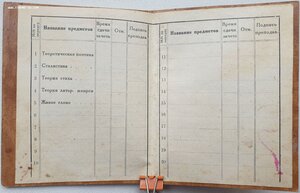 Название предметов
Время сдачи зачета
Отм.
Подпись преподав.
1 Теоретическая поэтика
2 Стилистика
3 Теория стиха
4 Теория литер. жанров
5 Живое слово
6
7
8
9
10
Название предметов
Время сдачи зачета
Отм.
Подпись преподав.
11
12
13
14
15
16
17
18
19
20